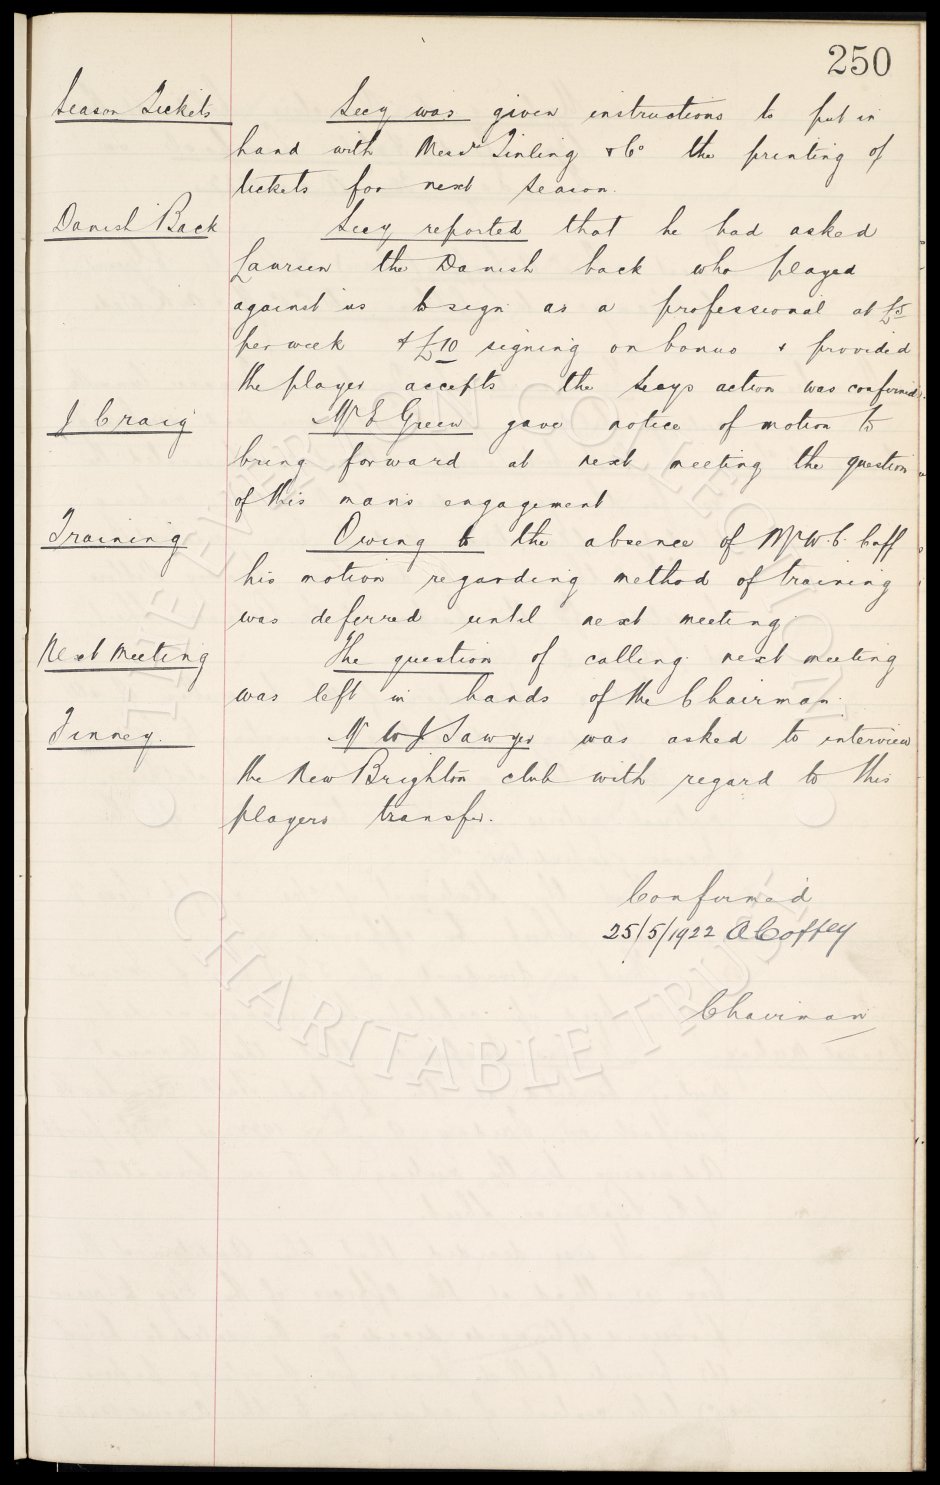 250
Season Tickets
Secy was given instructions to put in
hand with Messrs Tinling & Co the printing of
tickets for next season.
Danish Back
Secy reported that he had asked
Laursen the Danish back who played
against us to sign as a professional at £5
per week & £10 signing on bonus & provided
the player accepts the Secys action was confirmed.
J Craig
Mr E Green gave notice of motion to
bring forward at next meeting the question
of this man's engagement
Training
Owing to the absence of Mr W. C. Cuff
his motion regarding method of training
was deferred until next meeting
Next Meeting
The question of calling next meeting
was left in hands of the Chairman.
Finney.
Mr W J Sawyer was asked to interview
the New Brighton club with regard to this
players transfer.
Confirmed
25/5/1922 A Coffey
Chairman
© THE EVERTON COLLECTION ©
CHARITABLE TRUST